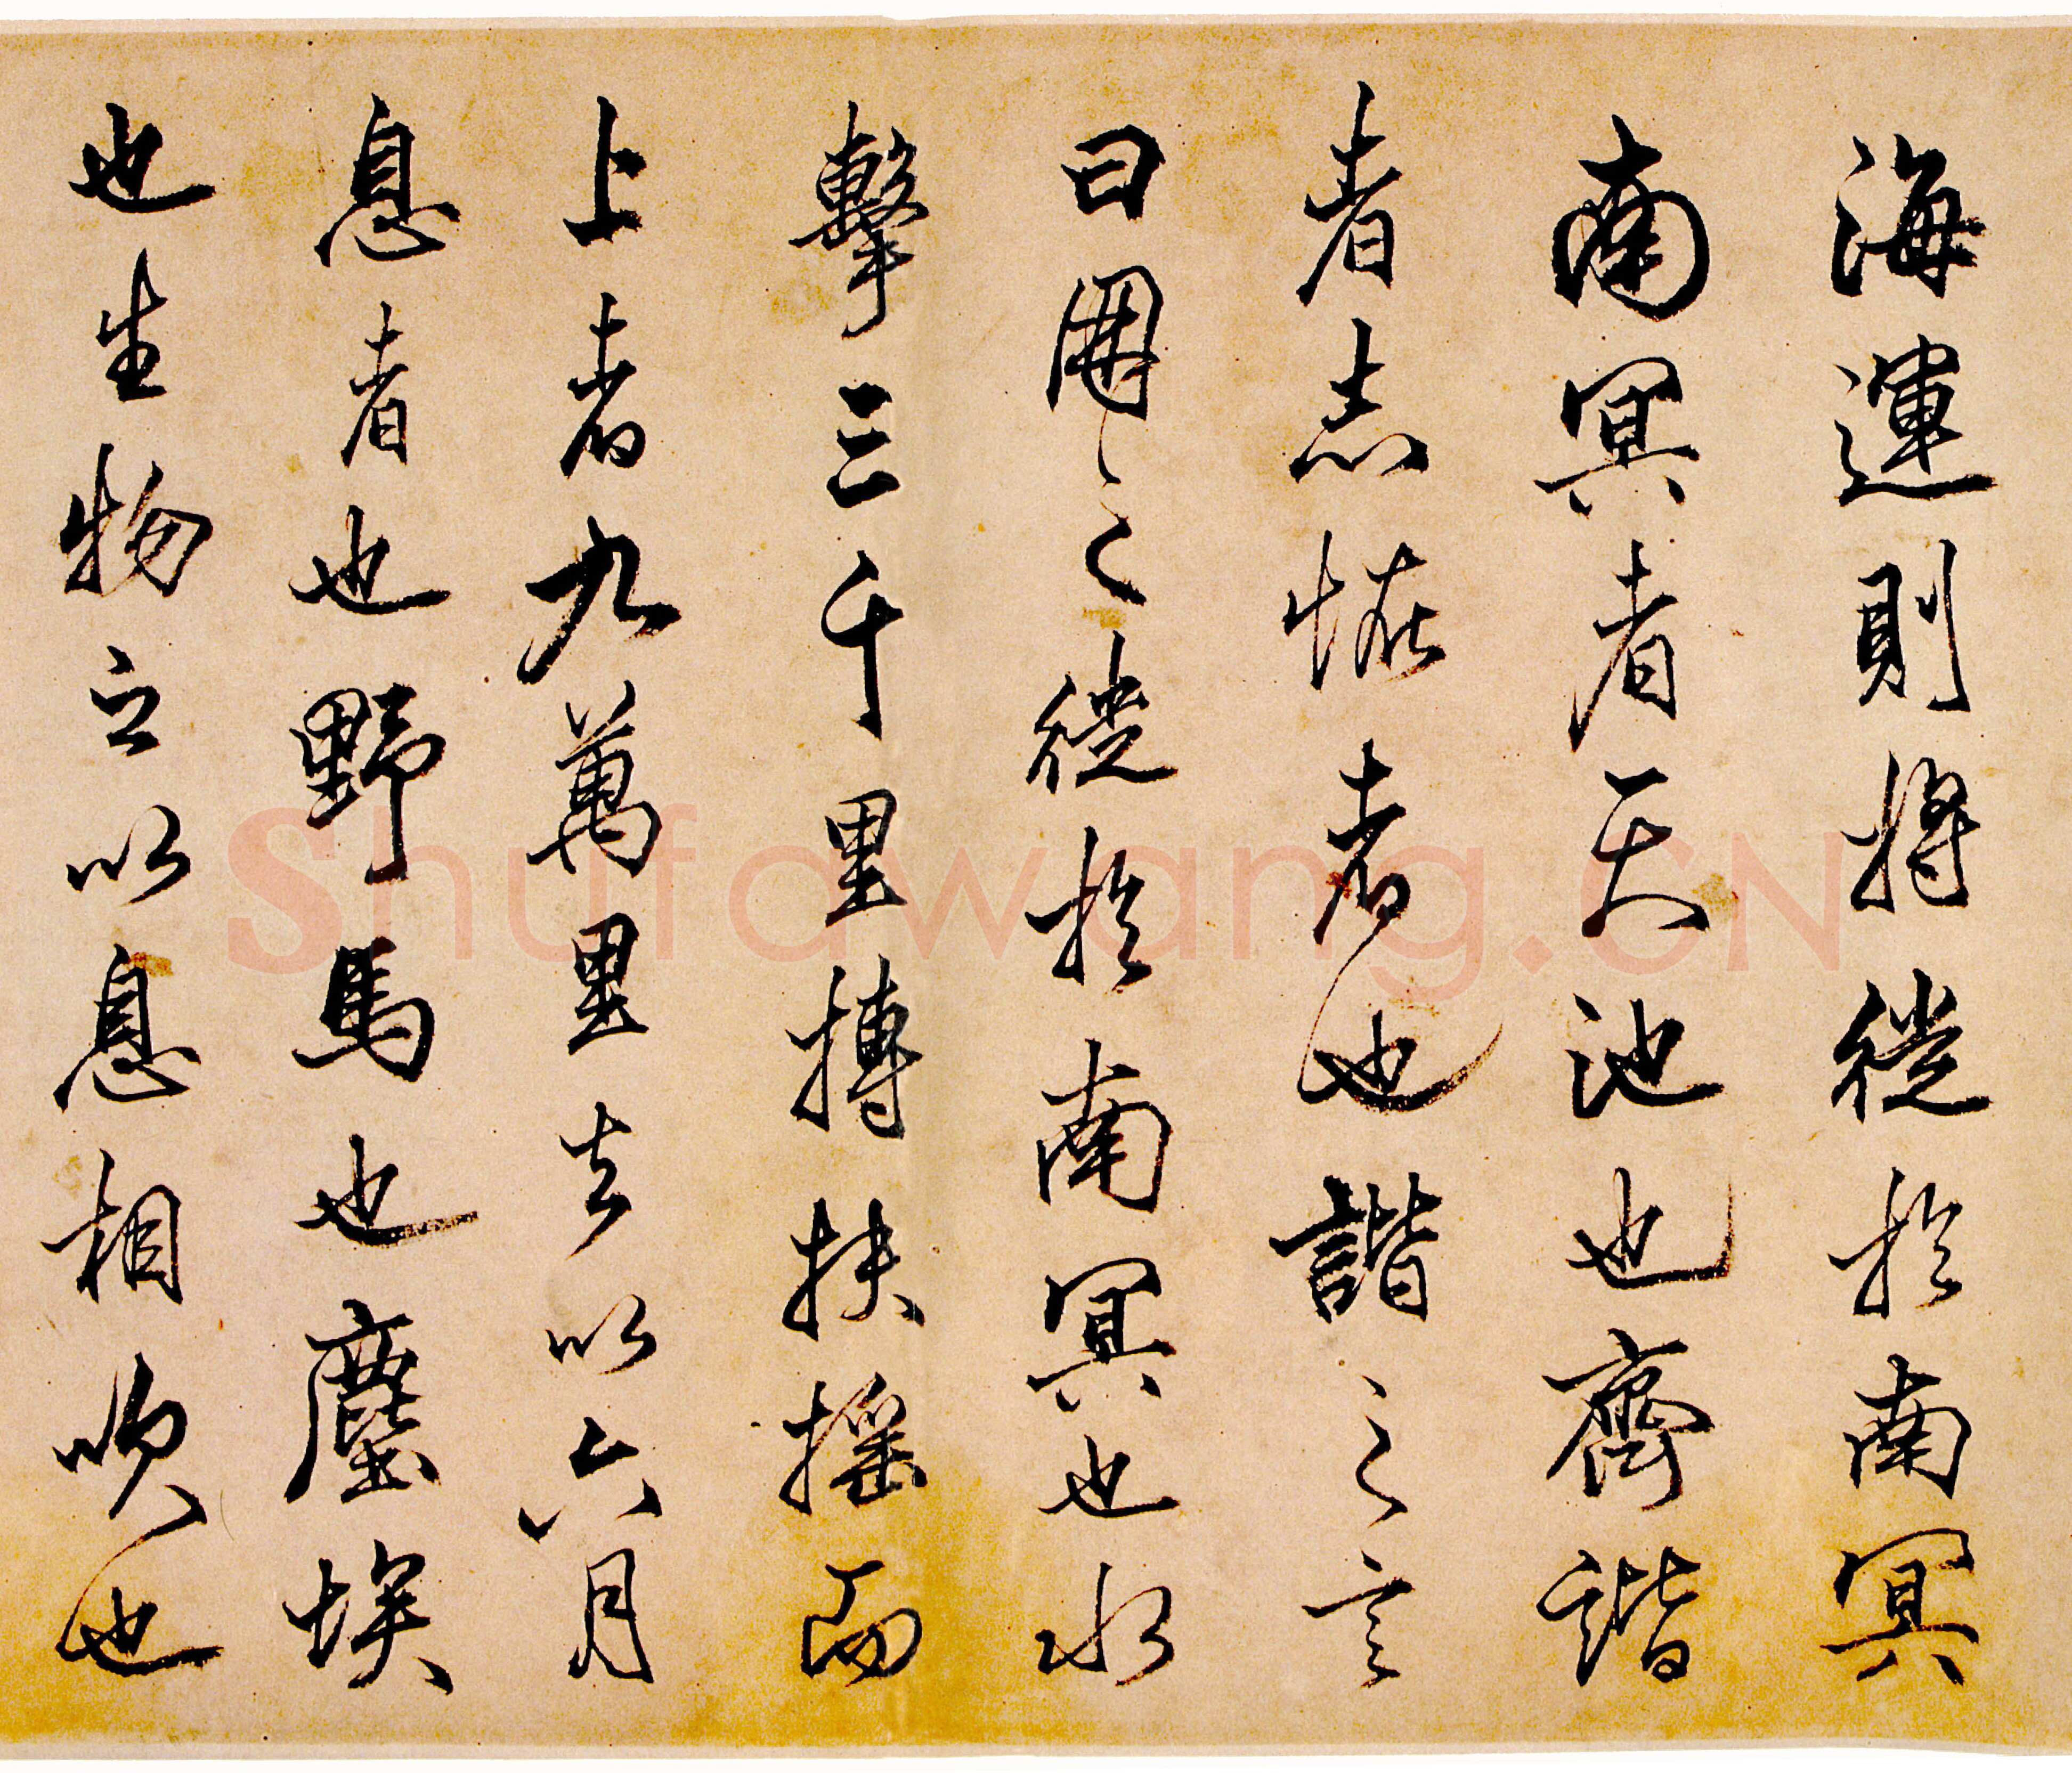 海運則將徙於南冥
南冥者天池也齊諧
者志恠者也諧之言
曰鵬之徙於南冥也水
擊三千里摶扶搖而
上者九萬里去以六月
息者也野馬也塵埃
也生物之以息相吹也
Shufawang.CN